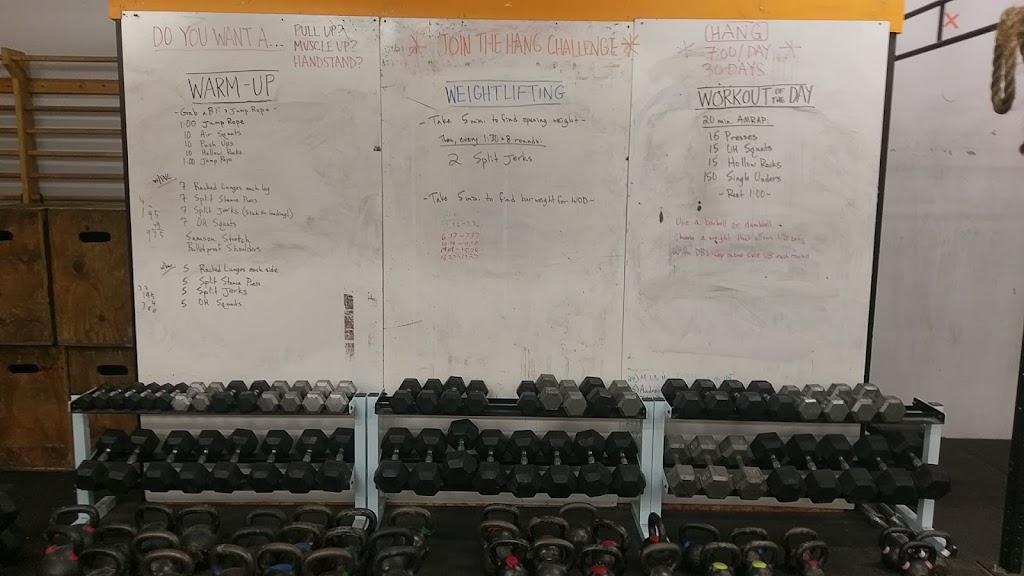 DO YOU WANT A...
PULL UP?
MUSCLE UP?
HANDSTAND?
WARM-UP
1:00 Jump Rope
10 Air Squats
10 Push Ups
10 Hollow Rocks
1:00 Jump Rope
7 Racked Lunges each leg
7 Split Stance Press
7 Split Jerks
7 OH Squats
Samson Stretch
Bulletproof Shoulders
5 Racked Lunges each side
5 Split Stance Press
5 Split Jerks
5 OH Squats
* JOIN THE HANG CHALLENGE *
WEIGHTLIFTING
- Take 5 min. to find opening weight -
Then, every 1:30 x 8 rounds:
2 Split Jerks
- Take 5 min. to find bar weight for WOD -
HANG
* 7:00/DAY *
30 DAYS
WORKOUT OF THE DAY
20 min. AMRAP:
15 Presses
15 OH Squats
15 Hollow Rocks
150 Single Unders
- Rest 1:00 -
Use a barbell or dumbbell